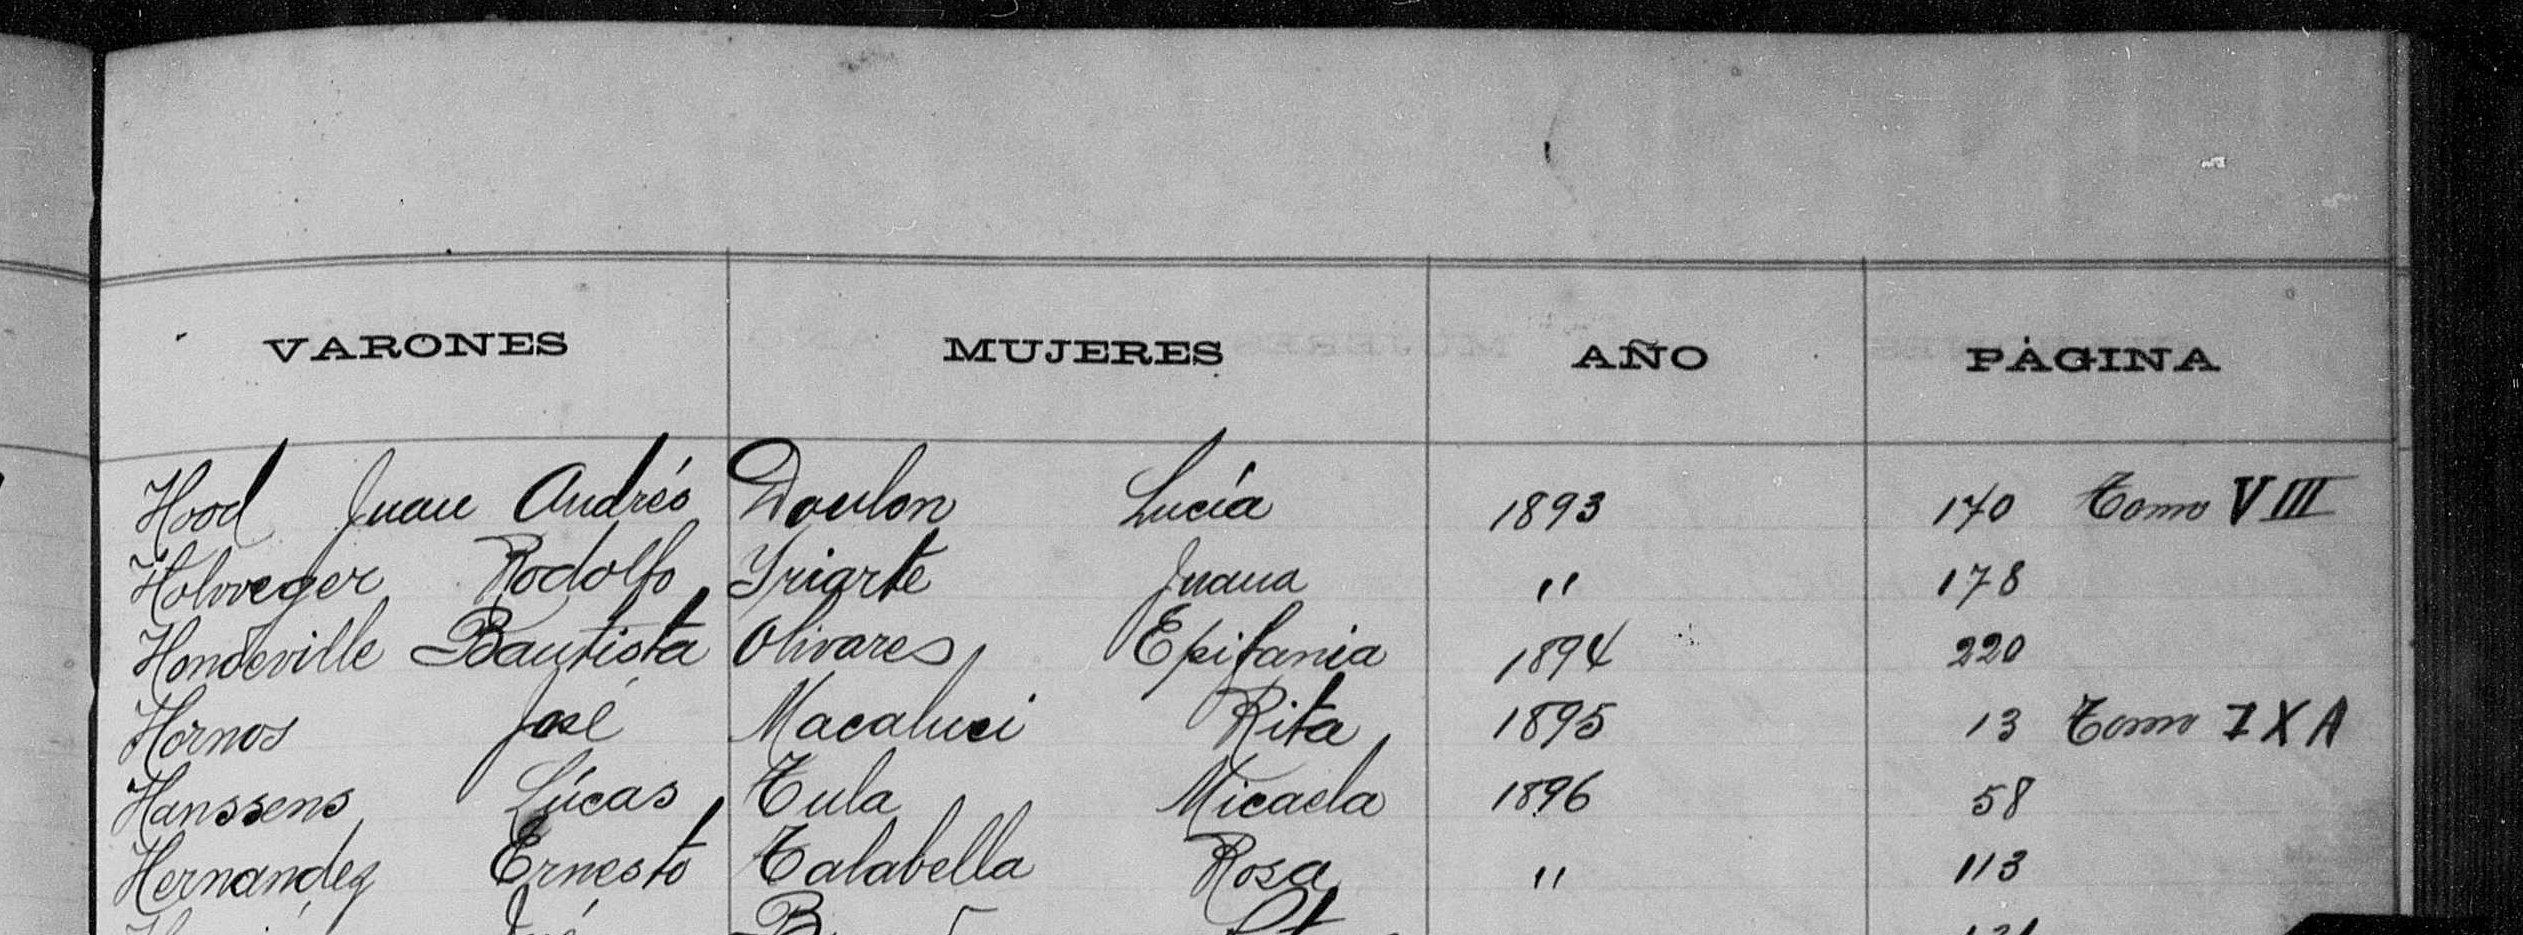 VARONES MUJERES AÑO PÁGINA
Hood Juan Andrés Doulon Lucía 1893 170 Tomo VIII
Holvveger Rodolfo Yriarte Juana " 178
Hondeville Bautista Olivares Epifania 1894 220
Hornos José Macaluci Rita 1895 13 Tomo IX A
Hanssens Lúcas Tula Micaela 1896 58
Hernandez Ernesto Talabella Rosa " 113